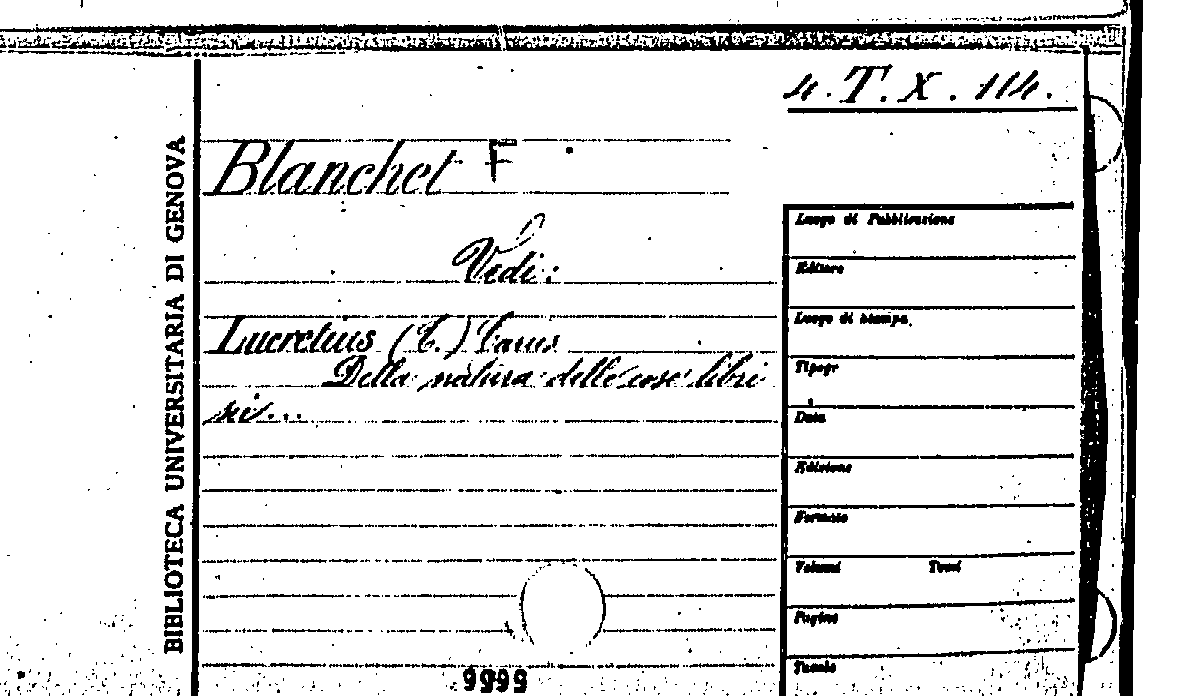 4. T. X. 114.
Blanchet F
Vedi:
Lucretius (C.) Carus
Della natura delle cose libri
sei...
BIBLIOTECA UNIVERSITARIA DI GENOVA
Luogo di Pubblicazione
Editore
Luogo di stampa
Tipogr
Data
Edizione
Formato
Volumi Tomi
Pagine
Tavole
9999